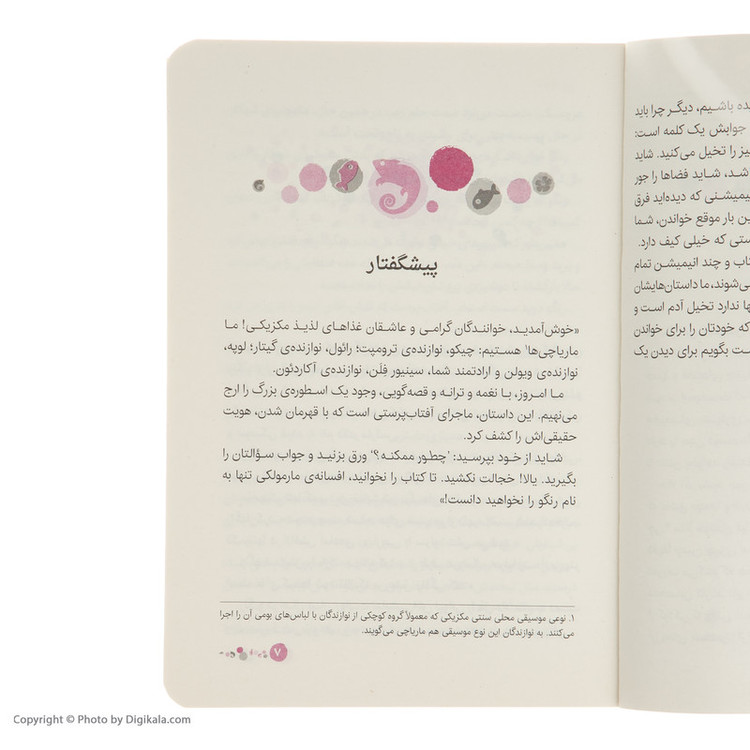 ده باشیم، دیگر چرا باید
جوابش یک کلمه است:
یز را تخیل می‌کنید. شاید
شد، شاید فضاها را جور
نیمیشنی که دیده‌اید فرق
ین بار موقع خواندن، شما
ستی که خیلی کیف دارد.
تاب و چند انیمیشن تمام
ی‌شوند، ما داستان‌هایشان
ها ندارد تخیل آدم است و
که خودتان را برای خواندن
ست بگویم برای دیدن یک
پیشگفتار
«خوش‌آمدید، خوانندگان گرامی و عاشقان غذاهای لذیذ مکزیکی! ما
ماریاچی‌ها۱ هستیم: چیکو، نوازنده‌ی ترومپت؛ رائول، نوازنده‌ی گیتار؛ لوپه،
نوازنده‌ی ویولن و ارادتمند شما، سینیور فِلَن، نوازنده‌ی آکاردئون.
ما امروز، با نغمه و ترانه و قصه‌گویی، وجود یک اسطوره‌ی بزرگ را ارج
می‌نهیم. این داستان، ماجرای آفتاب‌پرستی است که با قهرمان شدن، هویت
حقیقی‌اش را کشف کرد.
شاید از خود بپرسید: ‘چطور ممکنه؟’ ورق بزنید و جواب سؤالتان را
بگیرید. یالا! خجالت نکشید. تا کتاب را نخوانید، افسانه‌ی مارمولکی تنها به
نام رنگو را نخواهید دانست!»
۱. نوعی موسیقی محلی سنتی مکزیکی که معمولاً گروه کوچکی از نوازندگان با لباس‌های بومی آن را اجرا
می‌کنند. به نوازندگان این نوع موسیقی هم ماریاچی می‌گویند.
۷
Copyright © Photo by Digikala.com